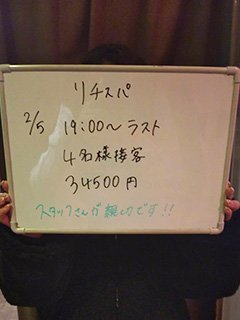 リチスパ
2/5 19:00〜ラスト
4名様接客
34500円
スタッフさんが親切です!!